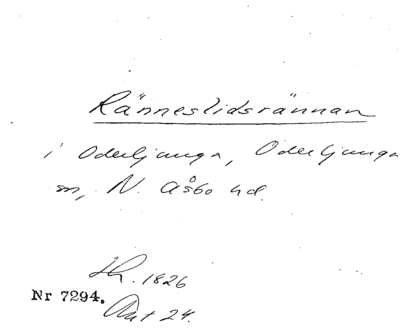 Ränneslidsrännan
i Oderljunga, Oderljunga
sn, N. Åsbo hd.
Lh. 1826
Nr 7294.
Akt 24.